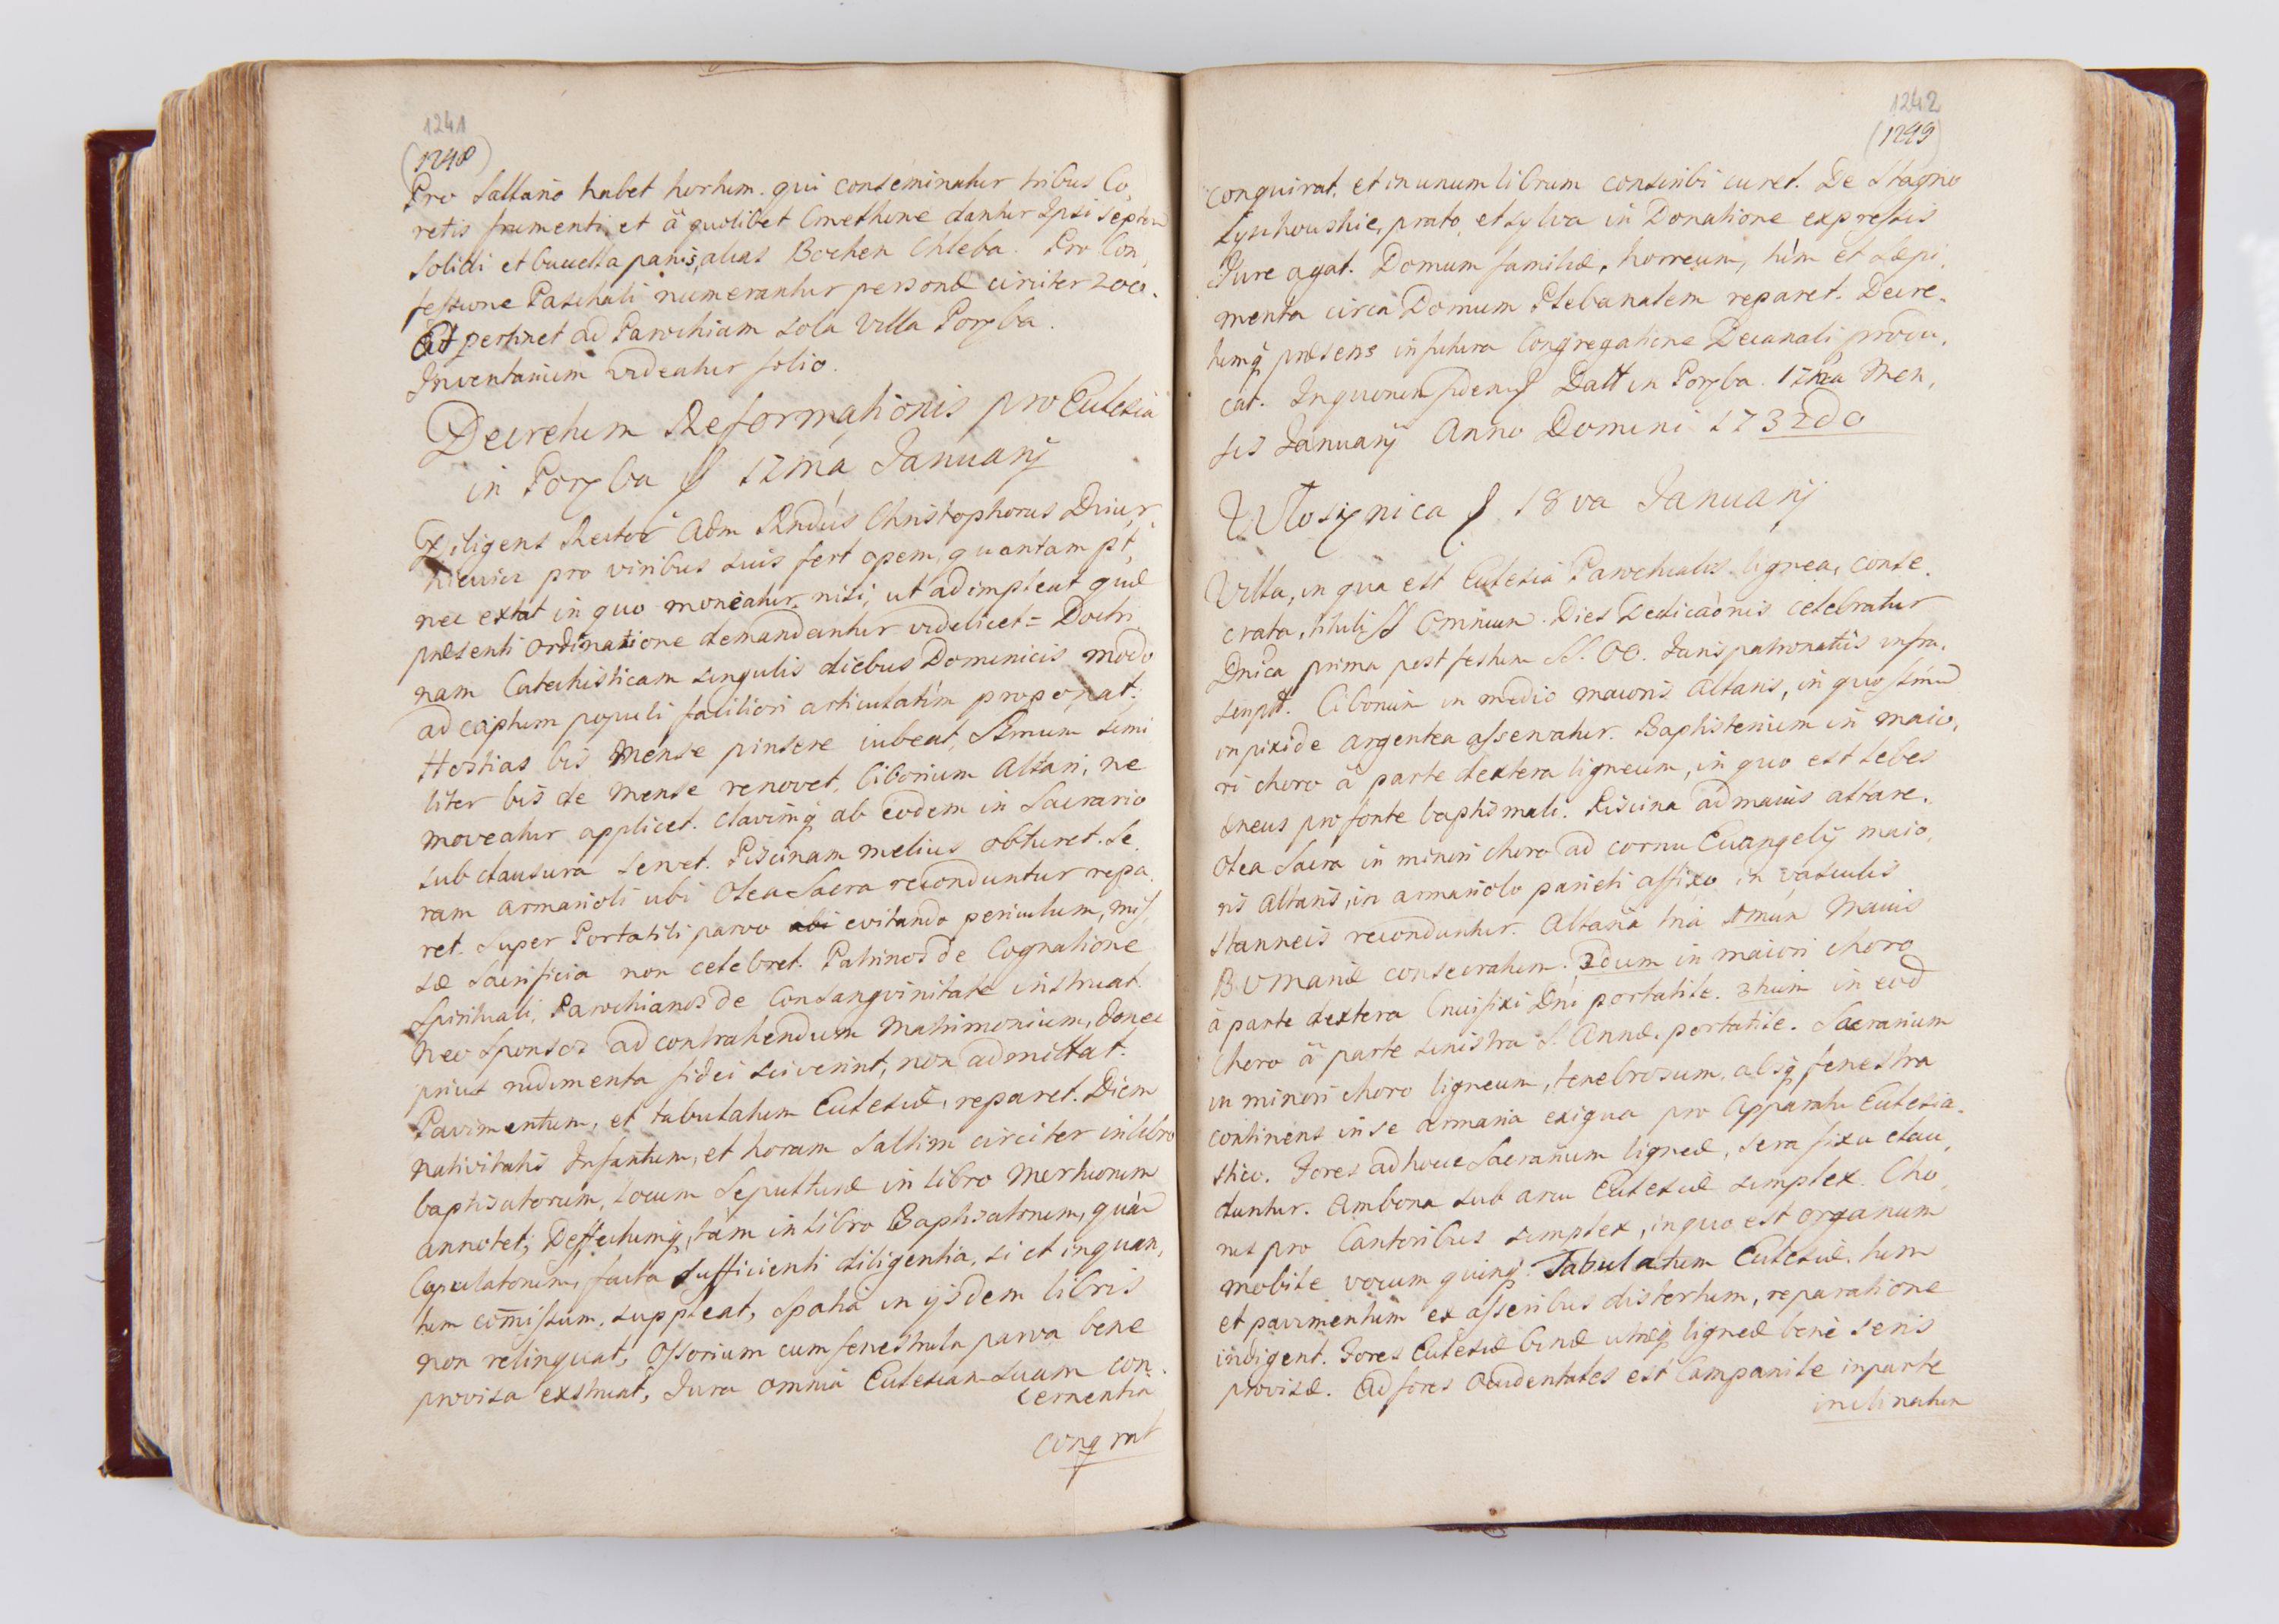 1241
(1248)
Pro Saltario habet hortum. qui conseminatur tribus Co,
retis frumenti, et à quolibet Cmethone dantur Ipsi septem
Solidi et buccella panis, alias Bochen Chleba. Pro Con,
fessione Paschali numerantur personæ circiter 200.
Et pertinet ad Parochiam sola Villa Poręba.
Inventarium videatur folio.
Decretum Reformationis pro Ecclesia
in Poręba 17ma Januarij
Diligens Rector Adm Rndus Christophorus
pro viribus suis fert opem, quantam pt,
nec extat in quo moneatur nisi, ut adimpleat quæ
præsenti ordinatione demandantur videlicet = Doctri,
nam Catechisticam singulis diebus Dominicis modo
ad captum populi faciliori articulatim proponat;
Hostias bis Mense pinsere iubeat, SSmum simi
liter bis de Mense renovet. Ciborium Altari, ne
moveatur applicet. clavimq ab eodem in Sacrario
sub clausura servet. Piscinam melius obturet. Se,
ram armarioli ubi Olea Sacra reconduntur repa,
ret. Super Portatili parvo evitando periculum, mis,
sæ Sacrificia non celebret. Patrinos de Cognatione
Spirituali, Parochianos de Consangvinitate instruat.
Neo Sponsos ad contrahendum Matrimonium, donec
prius rudimenta fidei sciverint, non admittat.
Pavimentum, et tabulatum Ecclesiæ, reparet. Diem
Nativitatis Infantum, et horam Saltim circiter in libro
baptisatorum, Locum Sepulturæ in libro Mortuorum
annotet; Deffectumq, tàm in Libro Baptisatorum, quàm
Copulatorum, facta sufficienti diligentia, si et inquan,
tum comissum, suppleat, Spatia in ijsdem libris
non relinquat, Ossorium cum fenestrula parva bene
provisa exstruat, Jura omnia Ecclesiam suam con-
cernentia
conq rat
1242
(1249)
conquirat, et in unum librum conscribi curet. De Stagno
Lyschowskie, prato, et sylva in Donatione expressis
Jure agat. Domum familiæ, horreum, tùm et sæpi,
menta circa Domum Plebanalem reparet. Decre,
tumq præsens in futura Congregatione Decanali produ,
cat. In quorum fidem Datt in Poręba. 17ma Men,
sis Januarij Anno Domini 1732do
Włosięnica 18va Januarij
Villa, in qua est Ecclesia Parochialis lignea, conse,
crata, tituli SS Omnium. Dies Dedicaonis celebratur
Dnica prima post festum SS. OO. Juris patronatûs infra.
script. Ciborium in medio maioris Altaris, in quo SSmũ
in pixide argentea asservatur. Baptisterium in maio,
ri choro à parte dextera ligneum, in quo est lebes
æneus pro fonte baptismali. Piscina ad maius altare.
Olea Sacra in minori choro ad cornu Evangelij maio,
ris Altaris, in armariolo parieti affixo in vasculis
stanneis reconduntur. Altaria tria 1mum Maius
BVMariæ consecratum. 2dum in maiori choro
à parte dextera Crucifixi Dni portatile. 3tium in eod
Choro à parte sinistra S. Annæ. portatile. Sacrarium
in minori choro ligneum, tenebrosum, absq fenestra
continens in se armaria exigua pro Apparatu Ecclesia-
stico. Fores ad hocce Sacrarium ligneæ, sera fixa clau,
duntur. Ambona sub arcu Ecclesiæ simplex. Cho,
rus pro Cantoribus simplex, in quo est organum
mobile vocum quinq. Tabulatum Ecclesiæ. tum
et pavimentum ex asseribus distortum, reparatione
indigent. Fores Ecclesiæ binæ utræq ligneæ benè seris
provisæ. Ad fores Occidentales est Campanile in parte
inclinatum